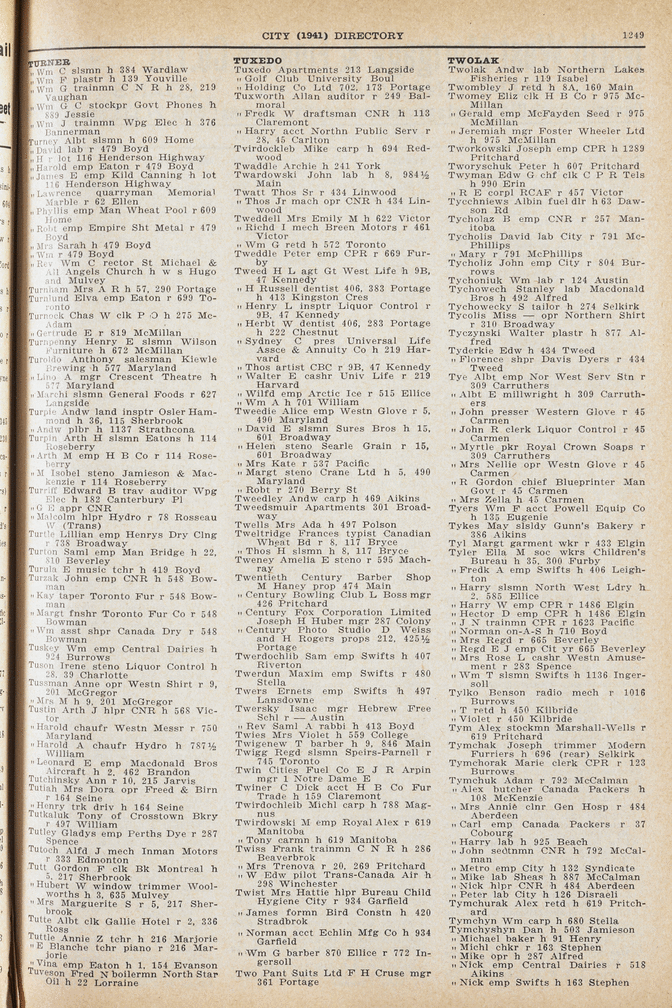 CITY (1941) DIRECTORY 1249
TURNER
„ Wm C slsmn h 384 Wardlaw
„ Wm F plastr h 139 Youville
„ Wm G trainmn C N R h 28, 219
Vaughan
„ Wm G C stockpr Govt Phones h
889 Jessie
„ Wm J trainmn Wpg Elec h 376
Bannerman
Turney Albt slsmn h 609 Home
„ David lab r 479 Boyd
„ H r lot 116 Henderson Highway
„ Harold emp Eaton r 479 Boyd
„ James E emp Kild Canning h lot
116 Henderson Highway
„ Lawrence quarryman Memorial
Marble r 62 Ellen
„ Phyllis emp Man Wheat Pool r 609
Home
„ Robt emp Empire Sht Metal r 479
Boyd
„ Mrs Sarah h 479 Boyd
„ Wm r 479 Boyd
„ Rev Wm C rector St Michael &
All Angels Church h w s Hugo
and Mulvey
Turnham Mrs A R h 57, 290 Portage
Turnlund Elva emp Eaton r 699 To-
ronto
Turnock Chas W clk P O h 275 Mc-
Adam
„ Gertrude E r 819 McMillan
Turnpenny Henry E slsmn Wilson
Furniture h 672 McMillan
Turoldo Anthony salesman Kiewle
Brewing h 577 Maryland
„ Lino A mgr Crescent Theatre h
577 Maryland
„ Marchi slsmn General Foods r 627
Langside
Turpie Andw land insptr Osler Ham-
mond h 36, 115 Sherbrook
„ Andw plbr h 1137 Strathcona
Turpin Arth H slsmn Eatons h 114
Roseberry
„ Arth M emp H B Co r 114 Rose-
berry
„ M Isobel steno Jamieson & Mac-
kenzie r 114 Roseberry
Turriff Edward B trav auditor Wpg
Elec h 182 Canterbury Pl
„ G E appr CNR
„ Malcolm hlpr Hydro r 78 Rosseau
W (Trans)
Turtle Lillian emp Henrys Dry Clng
r 738 Broadway
Turton Saml emp Man Bridge h 22,
810 Beverley
Turula E music tchr h 419 Boyd
Turzak John emp CNR h 548 Bow-
man
„ Kay taper Toronto Fur r 548 Bow-
man
„ Margt fnshr Toronto Fur Co r 548
Bowman
„ Wm asst shpr Canada Dry r 548
Bowman
Tuskey Wm emp Central Dairies h
924 Burrows
Tuson Irene steno Liquor Control h
28, 39 Charlotte
Tussman Anne opr Westn Shirt r 9,
201 McGregor
„ Mrs M h 9, 201 McGregor
Tustin Arth J hlpr CNR h 568 Vic-
tor
„ Harold chaufr Westn Messr r 750
Maryland
„ Harold A chaufr Hydro h 787½
William
„ Leonard E emp Macdonald Bros
Aircraft h 2, 462 Brandon
Tutchinsky Ann r 10, 215 Jarvis
Tutiah Mrs Dora opr Freed & Birn
r 164 Seine
„ Henry trk driv h 164 Seine
Tutkaluk Tony of Crosstown Bkry
r 497 William
Tutley Gladys emp Perths Dye r 287
Spence
Tutoch Alfd J mech Inman Motors
r 333 Edmonton
Tutt Gordon F clk Bk Montreal h
5, 217 Sherbrook
„ Hubert W window trimmer Wool-
worths h 3, 635 Mulvey
„ Mrs Marguerite S r 5, 217 Sher-
brook
Tutte Albt clk Gallie Hotel r 2, 336
Ross
Tuttle Annie Z tchr h 216 Marjorie
„ E Blanche tchr piano r 216 Mar-
jorie
„ Vina emp Eaton h 1, 154 Evanson
Tuveson Fred N boilermn North Star
Oil h 22 Lorraine
TUXEDO
Tuxedo Apartments 213 Langside
„ Golf Club University Boul
„ Holding Co Ltd 702, 173 Portage
Tuxworth Allan auditor r 249 Bal-
moral
„ Fredk W draftsman CNR h 113
Claremont
„ Harry acct Northn Public Serv r
28, 45 Carlton
Tvirdockleb Mike carp h 694 Red-
wood
Twaddle Archie h 241 York
Twardowski John lab h 8, 984½
Main
Twatt Thos Sr r 434 Linwood
„ Thos Jr mach opr CNR h 434 Lin-
wood
Tweddell Mrs Emily M h 622 Victor
„ Richd I mech Breen Motors r 461
Victor
„ Wm G retd h 572 Toronto
Tweddle Peter emp CPR r 669 Fur-
by
Tweed H L agt Gt West Life h 9B,
47 Kennedy
„ H Russell dentist 406, 283 Portage
h 413 Kingston Cres
„ Henry L insptr Liquor Control r
9B, 47 Kennedy
„ Herbt W dentist 406, 283 Portage
h 222 Chestnut
„ Sydney C pres Universal Life
Assce & Annuity Co h 219 Har-
vard
„ Thos artist CBC r 9B, 47 Kennedy
„ Walter E cashr Univ Life r 219
Harvard
„ Wilfd emp Arctic Ice r 515 Ellice
„ Wm A h 701 William
Tweedie Alice emp Westn Glove r 5,
490 Maryland
„ David E slsmn Sures Bros h 15,
601 Broadway
„ Helen steno Searle Grain r 15,
601 Broadway
„ Mrs Kate r 537 Pacific
„ Margt steno Crane Ltd h 5, 490
Maryland
„ Robt r 270 Berry St
Tweedley Andw carp h 469 Aikins
Tweedsmuir Apartments 301 Broad-
way
Twells Mrs Ada h 497 Polson
Tweltridge Frances typist Canadian
Wheat Bd r 8, 117 Bryce
„ Thos H slsmn h 8, 117 Bryce
Tweney Amelia E steno r 595 Mach-
ray
Twentieth Century Barber Shop
M Haney prop 474 Main
„ Century Bowling Club L Boss mgr
426 Pritchard
„ Century Fox Corporation Limited
Joseph H Huber mgr 287 Colony
„ Century Photo Studio D Weiss
and H Rogers props 212, 425½
Portage
Twerdochlib Sam emp Swifts h 407
Riverton
Twerdun Maxim emp Swifts r 480
Stella
Twers Ernets emp Swifts h 497
Lansdowne
Twersky Isaac mgr Hebrew Free
Schl r — Austin
„ Rev Saml A rabbi h 413 Boyd
Twies Mrs Violet h 559 College
Twigenew T barber h 9, 846 Main
Twigg Regd slsmn Speirs-Parnell r
745 Toronto
Twin Cities Fuel Co E J R Arpin
mgr 1 Notre Dame E
Twiner C Dick acct H B Co Fur
Trade h 159 Claremont
Twirdochleib Michl carp h 788 Mag-
nus
Twirdowski M emp Royal Alex r 619
Manitoba
„ Tony carmn h 619 Manitoba
Twiss Frank trainmn C N R h 286
Beaverbrok
„ Mrs Trenova r 20, 269 Pritchard
„ W Edw pilot Trans-Canada Air h
298 Winchester
Twist Mrs Hattie hlpr Bureau Child
Hygiene City r 934 Garfield
„ James formn Bird Constn h 420
Stradbrok
„ Norman acct Echlin Mfg Co h 934
Garfield
„ Wm G barber 870 Ellice r 772 In-
gersoll
Two Pant Suits Ltd F H Cruse mgr
361 Portage
TWOLAK
Twolak Andw lab Northern Lakes
Fisheries r 119 Isabel
Twombley J retd h 8A, 160 Main
Twomey Eliz clk H B Co r 975 Mc-
Millan
„ Gerald emp McFayden Seed r 975
McMillan
„ Jeremiah mgr Foster Wheeler Ltd
h 975 McMillan
Tworkowski Joseph emp CPR h 1289
Pritchard
Tworyschuk Peter h 607 Pritchard
Twyman Edw G chf clk C P R Tels
h 990 Erin
„ R E corpl RCAF r 457 Victor
Tycchniews Albin fuel dlr h 63 Daw-
son Rd
Tycholaz B emp CNR r 257 Man-
itoba
Tycholis David lab City r 791 Mc-
Phillips
„ Mary r 791 McPhillips
Tycholiz John emp City r 804 Bur-
rows
Tychoniuk Wm lab r 124 Austin
Tychowech Stanley lab Macdonald
Bros h 492 Alfred
Tychowecky S tailor h 274 Selkirk
Tycolis Miss — opr Northern Shirt
r 310 Broadway
Tyczynski Walter plastr h 877 Al-
fred
Tyderkie Edw h 434 Tweed
„ Florence shpr Davis Dyers r 434
Tweed
Tye Albt emp Nor West Serv Stn r
309 Carruthers
„ Albt E millwright h 309 Carruth-
ers
„ John presser Western Glove r 45
Carmen
„ John R clerk Liquor Control r 45
Carmen
„ Myrtle pkr Royal Crown Soaps r
309 Carruthers
„ Mrs Nellie opr Westn Glove r 45
Carmen
„ R Gordon chief Blueprinter Man
Govt r 45 Carmen
„ Mrs Zella h 45 Carmen
Tyers Wm F acct Powell Equip Co
h 135 Eugenie
Tykes May slsldy Gunn's Bakery r
386 Aikins
Tyl Margt garment wkr r 433 Elgin
Tyler Ella M soc wkrs Children's
Bureau h 35, 300 Furby
„ Fredk A emp Swifts h 406 Leigh-
ton
„ Harry slsmn North West Ldry h
2, 585 Ellice
„ Harry W emp CPR r 1486 Elgin
„ Hector D emp CPR h 1486 Elgin
„ J N trainmn CPR r 1623 Pacific
„ Norman on-A-S h 710 Boyd
„ Mrs Regd r 665 Beverley
„ Regd E J emp Cit yr 665 Beverley
„ Mrs Rose L cashr Westn Amuse-
ment r 283 Spence
„ Wm T slsmn Swifts h 1136 Inger-
soll
Tylko Benson radio mech r 1016
Burrows
„ T retd h 450 Kilbride
„ Violet r 450 Kilbride
Tym Alex stockmn Marshall-Wells r
619 Pritchard
Tymchak Joseph trimmer Modern
Furriers h 696 (rear) Selkirk
Tymchorak Marie clerk CPR r 123
Burrows
Tymchuk Adam r 792 McCalman
„ Alex butcher Canada Packers h
108 McKenzie
„ Mrs Annie clnr Gen Hosp r 484
Aberdeen
„ Carl emp Canada Packers r 37
Cobourg
„ Harry lab h 925 Beach
„ John sectnmn CNR h 792 McCal-
man
„ Metro emp City h 132 Syndicate
„ Mike lab Sheas h 887 McCalman
„ Nick hlpr CNR h 484 Aberdeen
„ Peter lab City h 126 Disraeli
Tymchurak Alex retd h 619 Pritch-
ard
Tymchyn Wm carp h 680 Stella
Tymchyshyn Dan h 503 Jamieson
„ Michael baker h 91 Henry
„ Michl chkr r 163 Stephen
„ Mike opr h 287 Alfred
„ Nick emp Central Dairies r 518
Aikins
„ Nick emp Swifts h 163 Stephen